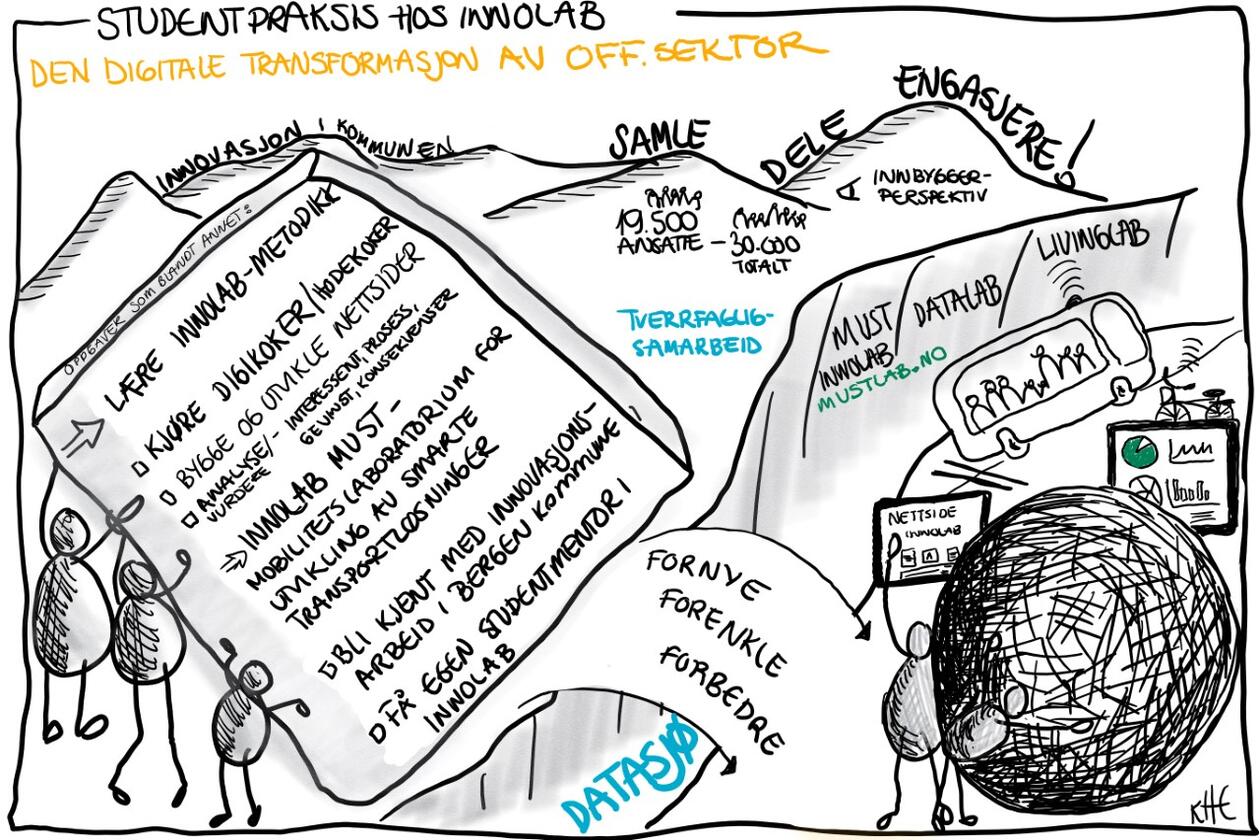 STUDENTPRAKSIS HOS INNOLAB
DEN DIGITALE TRANSFORMASJON AV OFF. SEKTOR
INNOVASJON I KOMMUNEN
SAMLE
DELE
ENGASJERE!
INNBYGGER-
PERSPEKTIV
19.500
ANSATTE –
30.000
TOTALT
TVERRFAGLIG-
SAMARBEID
OPPGAVER SOM BLANDT ANNET:
LÆRE INNOLAB-METODIKK
KJØRE DIGIKOKER/HODEKOKER
BYGGE OG UTVIKLE NETTSIDER
ANALYSE/- INTERESSENT, PROSESS,
VURDERE GEVINST, KONSEKVENSER
INNOLAB MUST –
MOBILITETSLABORATORIUM FOR
UTVIKLING AV SMARTE
TRANSPORTLØSNINGER
BLI KJENT MED INNOVASJONS-
ARBEID I BERGEN KOMMUNE
FÅ EGEN STUDENTMENTOR I
INNOLAB
MUST
INNOLAB
MUSTLAB.NO
DATALAB
LIVINGLAB
NETTSIDE
INNOLAB
FORNYE
FORENKLE
FORBEDRE
DATASJØ
KHE